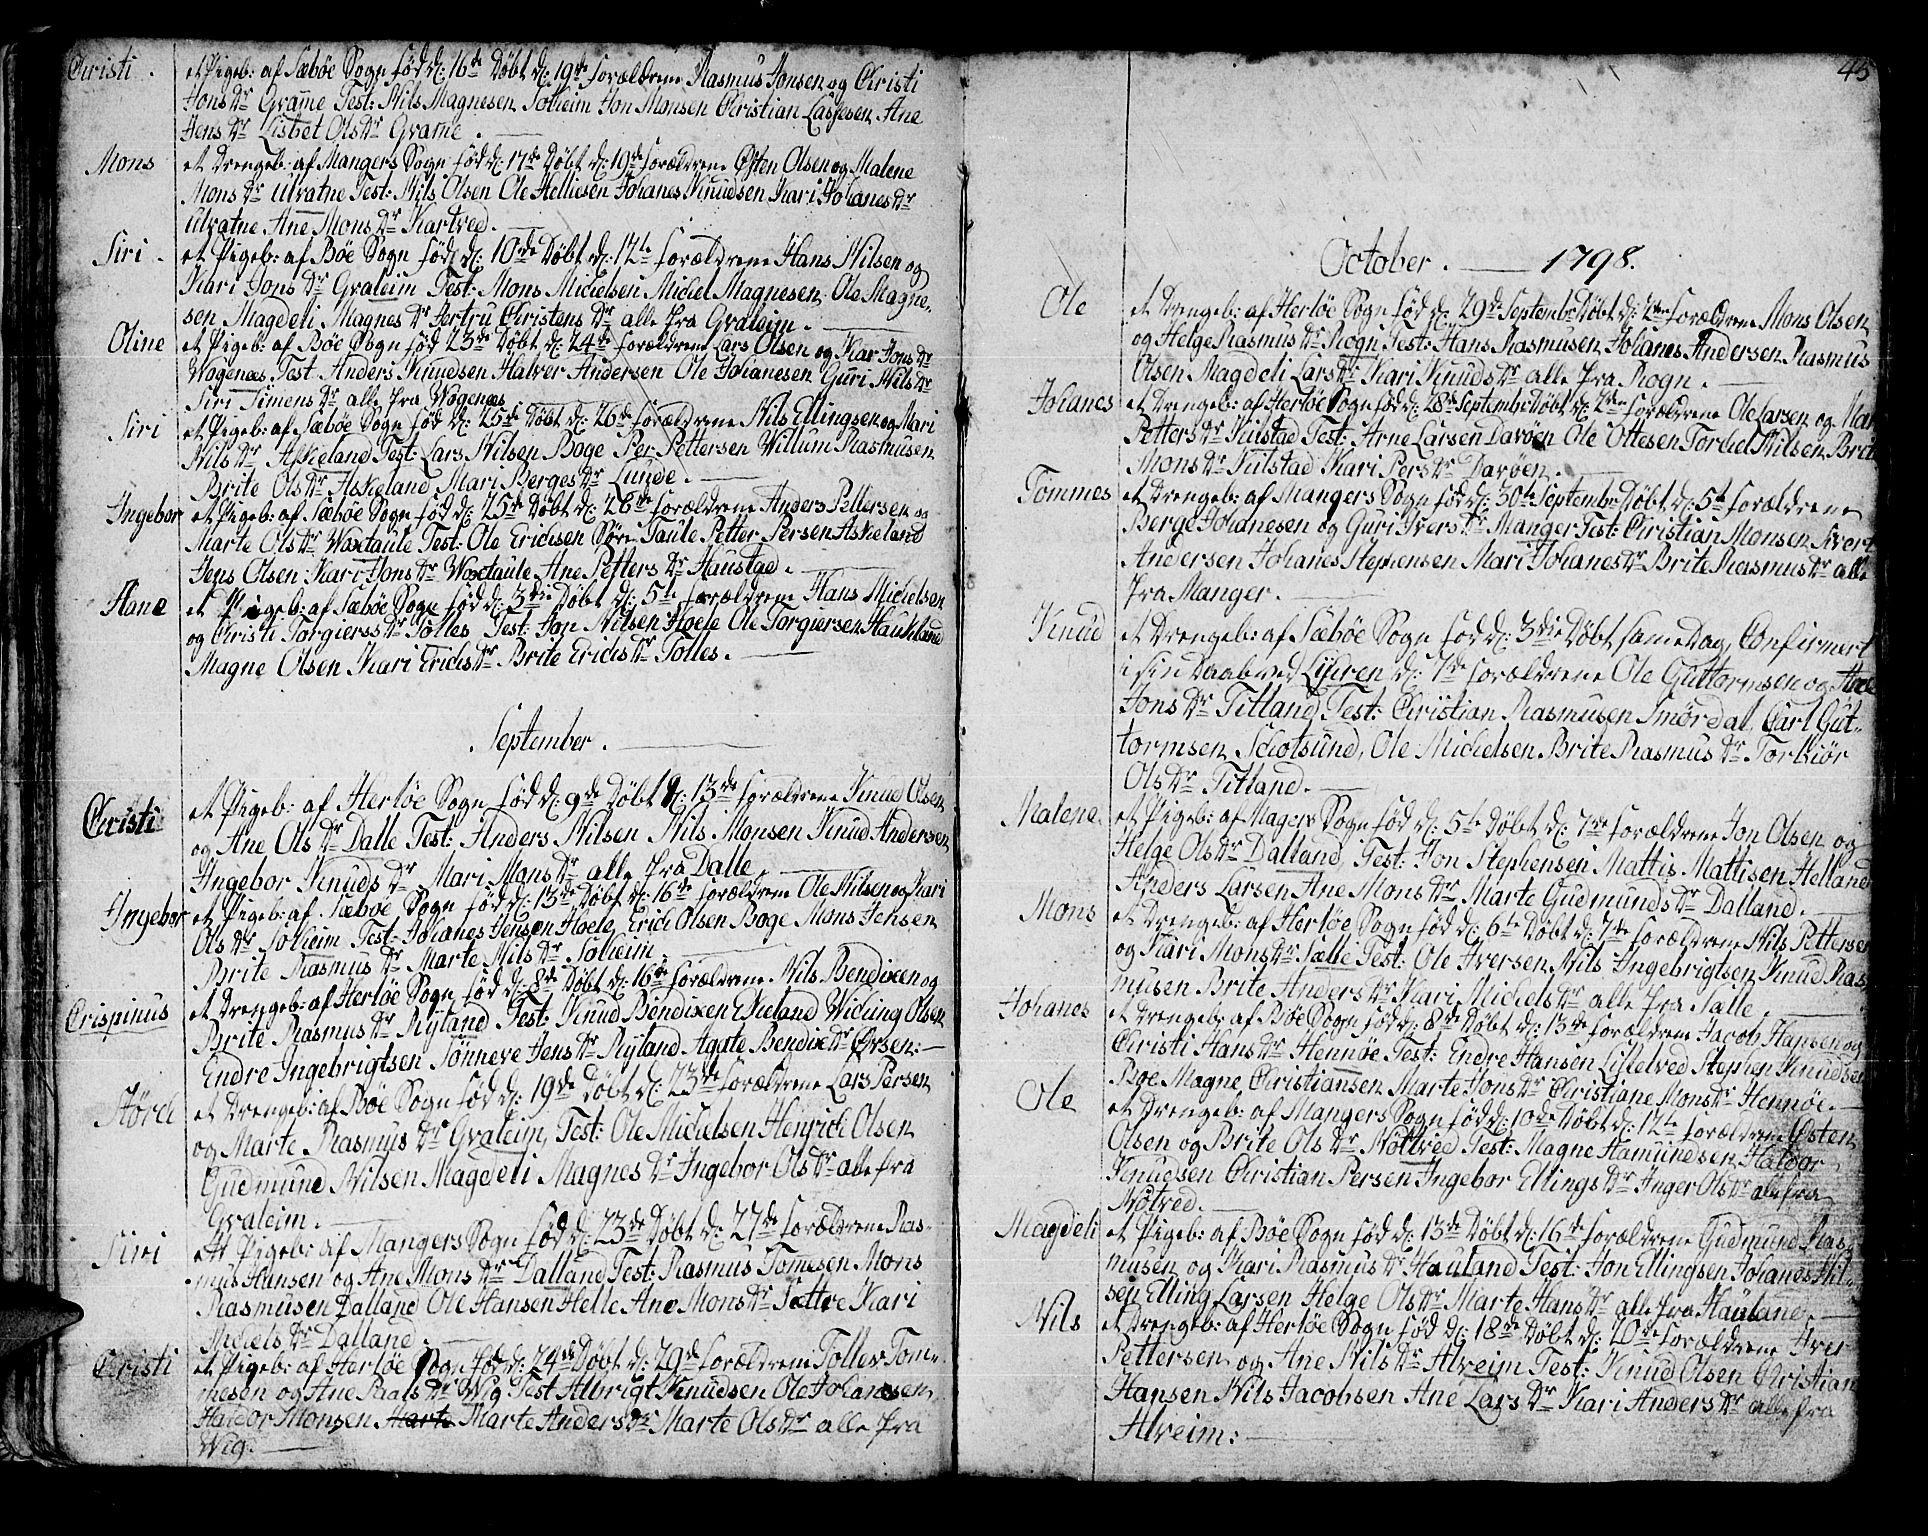 Christi. et Pigeb: af Sæbøe Sogn fød d: 16de Døbt d: 19de forældrene Rasmus Jonsen og Christi
Jons Dr Grame Test: Nils Magnesen Soheim Jon Monsen Christian Lassesen Ane
Jens Dr Lisbet Ols Dr Grame.
Mons et Drengeb: af Mangers Sogn fød d: 17de Døbt d: 19de forældrene Østen Olsen og Malene
Mons Dr Ulvatne Test: Nils Olsen Ole Helliesen Johanes Knudsen Kari Johanes Dr
Ulvatne Ane Mons Dr Kartved.
Siri. et Pigeb: af Bøe Sogn fød d: 10de Døbt d: 12te forældrene Hans Nilsen og
Kari Jons Dr Gvaleim Test: Mons Michelsen Michel Magnesen Ole Magne-
sen Magdeli Magnes Dr Jertru Christens Dr alle fra Gvaleim.
Oline et Pigeb: af Bøe Sogn fød 23de Døbt d: 24de forældrene Lars Olsen og Kar Jons Dr
Wogenæs. Test Anders Knudsen Halver Andersen Ole Johanesen Guri Nils Dr
Siri Simens Dr alle fra Wogenæs
Siri et Pigeb: af Sæbøe Sogn fød d: 25de Døbt d: 26de forældrene Nils Ellingsen og Mari
Nils Dr Askeland Test: Lars Nilsen Boge Per Pettersen Willum Rasmusen
Brite Ols Dr Askeland Mari Berges Dr Lunde.
Ingebor et Pigeb: af Sæbøe Sogn fød d: 25de Døbt d: 26de forældrene Anders Pettersen og
Marte Ols Dr Woxtaule Test: Ole Erichsen Søre Taule Petter Persen Askeland
Jens Olsen Kari Jons Dr Woxtaule Ane Petters Dr Haustad.
Hane et Pigeb: af Sæbøe Sogn fød d: 3die Døbt d: 5te forældrene Hans Michelsen
og Christi Torgierss Dr Tolles Test: Jon Nilsen Hoele Ole Torgiersen Haukland
Magne Olsen Kari Erichs Dr Brite Erichs Dr Tolles.
September.
Christi et Pigeb: af Herløe Sogn fød d: 9de Døbt d: 13de forældrene Knud Olsen
og Ane Ols Dr Dalle Test: Anders Nilsen Nils Monsen Knud Andersen
Ingebor Knuds Dr Mari Mans Dr alle fra Dalle
Ingebor et Pigeb: af Sæboe Sogn fød d: 13de Døbt d: 16de forældrene Ole Nilsen og Kari
Ols Dr Soheim Test: Johanes Jensen Hoele Erich Olsen Boge Mons Jensen
Brite Rasmus Dr Marte Nils Dr Solheim.
Crispinus et Drengeb: af Herløe Sogn fød d: 8de Døbt d: 16de forældrene Nils Bendixen og
Brite Rasmus Dr Ryland Test: Knud Bendixen Ekeland Wiching Olsen
Endre Ingebrigtsen Sønneve Jens Dr Ryland Agate Bendix Dr Ørsen:
Hørch et Drengeb: af Bøe Sogn fød d: 19de Døbt d: 23de forældrene Lars Persen
og Marte Rasmus Dr Gvaleim, Test: Ole Michelsen Henrich Olsen
Gudmund Nilsen Magdeli Magnes Dr Ingebor Ols Dr alle fra
Gvaleim.
Siri Et Pigeb: af Mangers Sogn fød d: 23de Døbt d: 27de forældrene Ras-
mus Hansen og Ane Mons Dr Dalland Test: Rasmus Tomesen Mons
Rasmusen Dalland Ole Hansen Helle Ane Mons Dr Sættre Kari
Michels Dr Dalland.
Christi et Pigeb: af Herløe Sogn fød d: 24de Døbt d: 29de forældrene Tollev Tom-
mesen og Ane Raals Dr Wig Test Albrigt Knudsen Ole Johansen
Haldor Monsen Marte Marte Anders Dr Marte Ols Dr alle fra
Wig.
45
October. 1798.
Ole et Drengeb: af Herløe Sogn fød d: 29de Septembr Døbt d: 2den forældrene Mons Olsen
og Helge Rasmus Dr Rogn Test: Hans Rasmusen Johanes Andersen Rasmus
Olsen Magdeli Lars Dr Kari Knuds Dr alle fra Rogn.
Johanes et Drengeb: af Herløe Sogn fød d: 28de Septembr Døbt d: 2den forældrene Ole Larsen og Mari
Petters Dr Kulstad Test: Arne Larsen Davøen Ole Ottesen Torchel Nilsen Brite
Mons Dr Kulstad Kari Pers Dr Davøen.
Tommes et Drengeb: af Mangers Sogn fød d: 30te Septembr Døbt d: 5te forældrene
Berge Johanesen og Guri Ivers Dr Manger Test: Christian Monsen Sivert
Andersen Johanes Stephensen Mari Johanes Dr Brite Rasmus Dr alle
fra Manger.
Knud et Drengeb: af Sæbøe Sogn fød d: 3die Døbt same Dag, Confirmert
i sin Daab ved Luhren d: 7de forældrene Ole Guttormsen og
Jons Dr Titland, Test: Christian Rasmusen Smørdal, Carl Gut-
tormsen Schotsund, Ole Michelsen Brite Rasmus Dr Torbiør
Ols Dr Titland.
Malene. et Pigeb: af Magers Sogn fød d: 5te Døbt d: 7de forældrene Jon Olsen og
Helge Ols Dr Dalland, Test: Jon Stephensen Mattis Mattisen Helland
Anders Larsen Ane Mons Dr Marte Gudmunds Dr Dalland.
Mons et Drengeb: af Herløe Sogn fød d: 6te Døbt d: 7de forældrene Nils Pettersen
og Kari Mons Dr Sælle Test: Ole Iversen Nils Ingebrigtsen Knud Ras-
musen Brite Anders Dr Kari Michels Dr alle fra Salle.
Johanes et Drengeb: af Bøe Sogn fød d: 8de Døbt d: 13de forældrene Jacob Hansen og
Christi Hans Dr Hennøe Test: Endre Hansen Lillelved Stephen Knudsen
Boe Magne Christiansen Marte Jons Dr Christiane Mons Dr Hennøe.
Ole et Drengeb: af Mangers Sogn fød d: 10de Døbt d: 12te forældrene Østen
Olsen og Brite Ols Dr Nøttved Test: Magne Hamundsen Haldor
Knudsen Christian Persen Ingebor Ellings Dr Inger Ols Dr alle fra
Nøtved.
Magdeli et Pigeb: af Bøe Sogn fød d: 13de Døbt d: 16de forældrene Gudmund Ras-
musen og Kari Rasmus Dr Hauland Test: Jon Ellingsen Johanes Nil-
sen Elling Larsen Helge Ols Dr Marte Hans Dr alle fra Hauland.
Nils et Drengeb: af Herløe Sogn fød d: 18de Døbt d: 20de forældrene Iver
Pettersen og Ane Nils Dr Alveim Test: Knud Olsen Christian
Hansen Nils Jacobsen Ane Lars Dr Kari Anders Dr alle fra
Alveim: